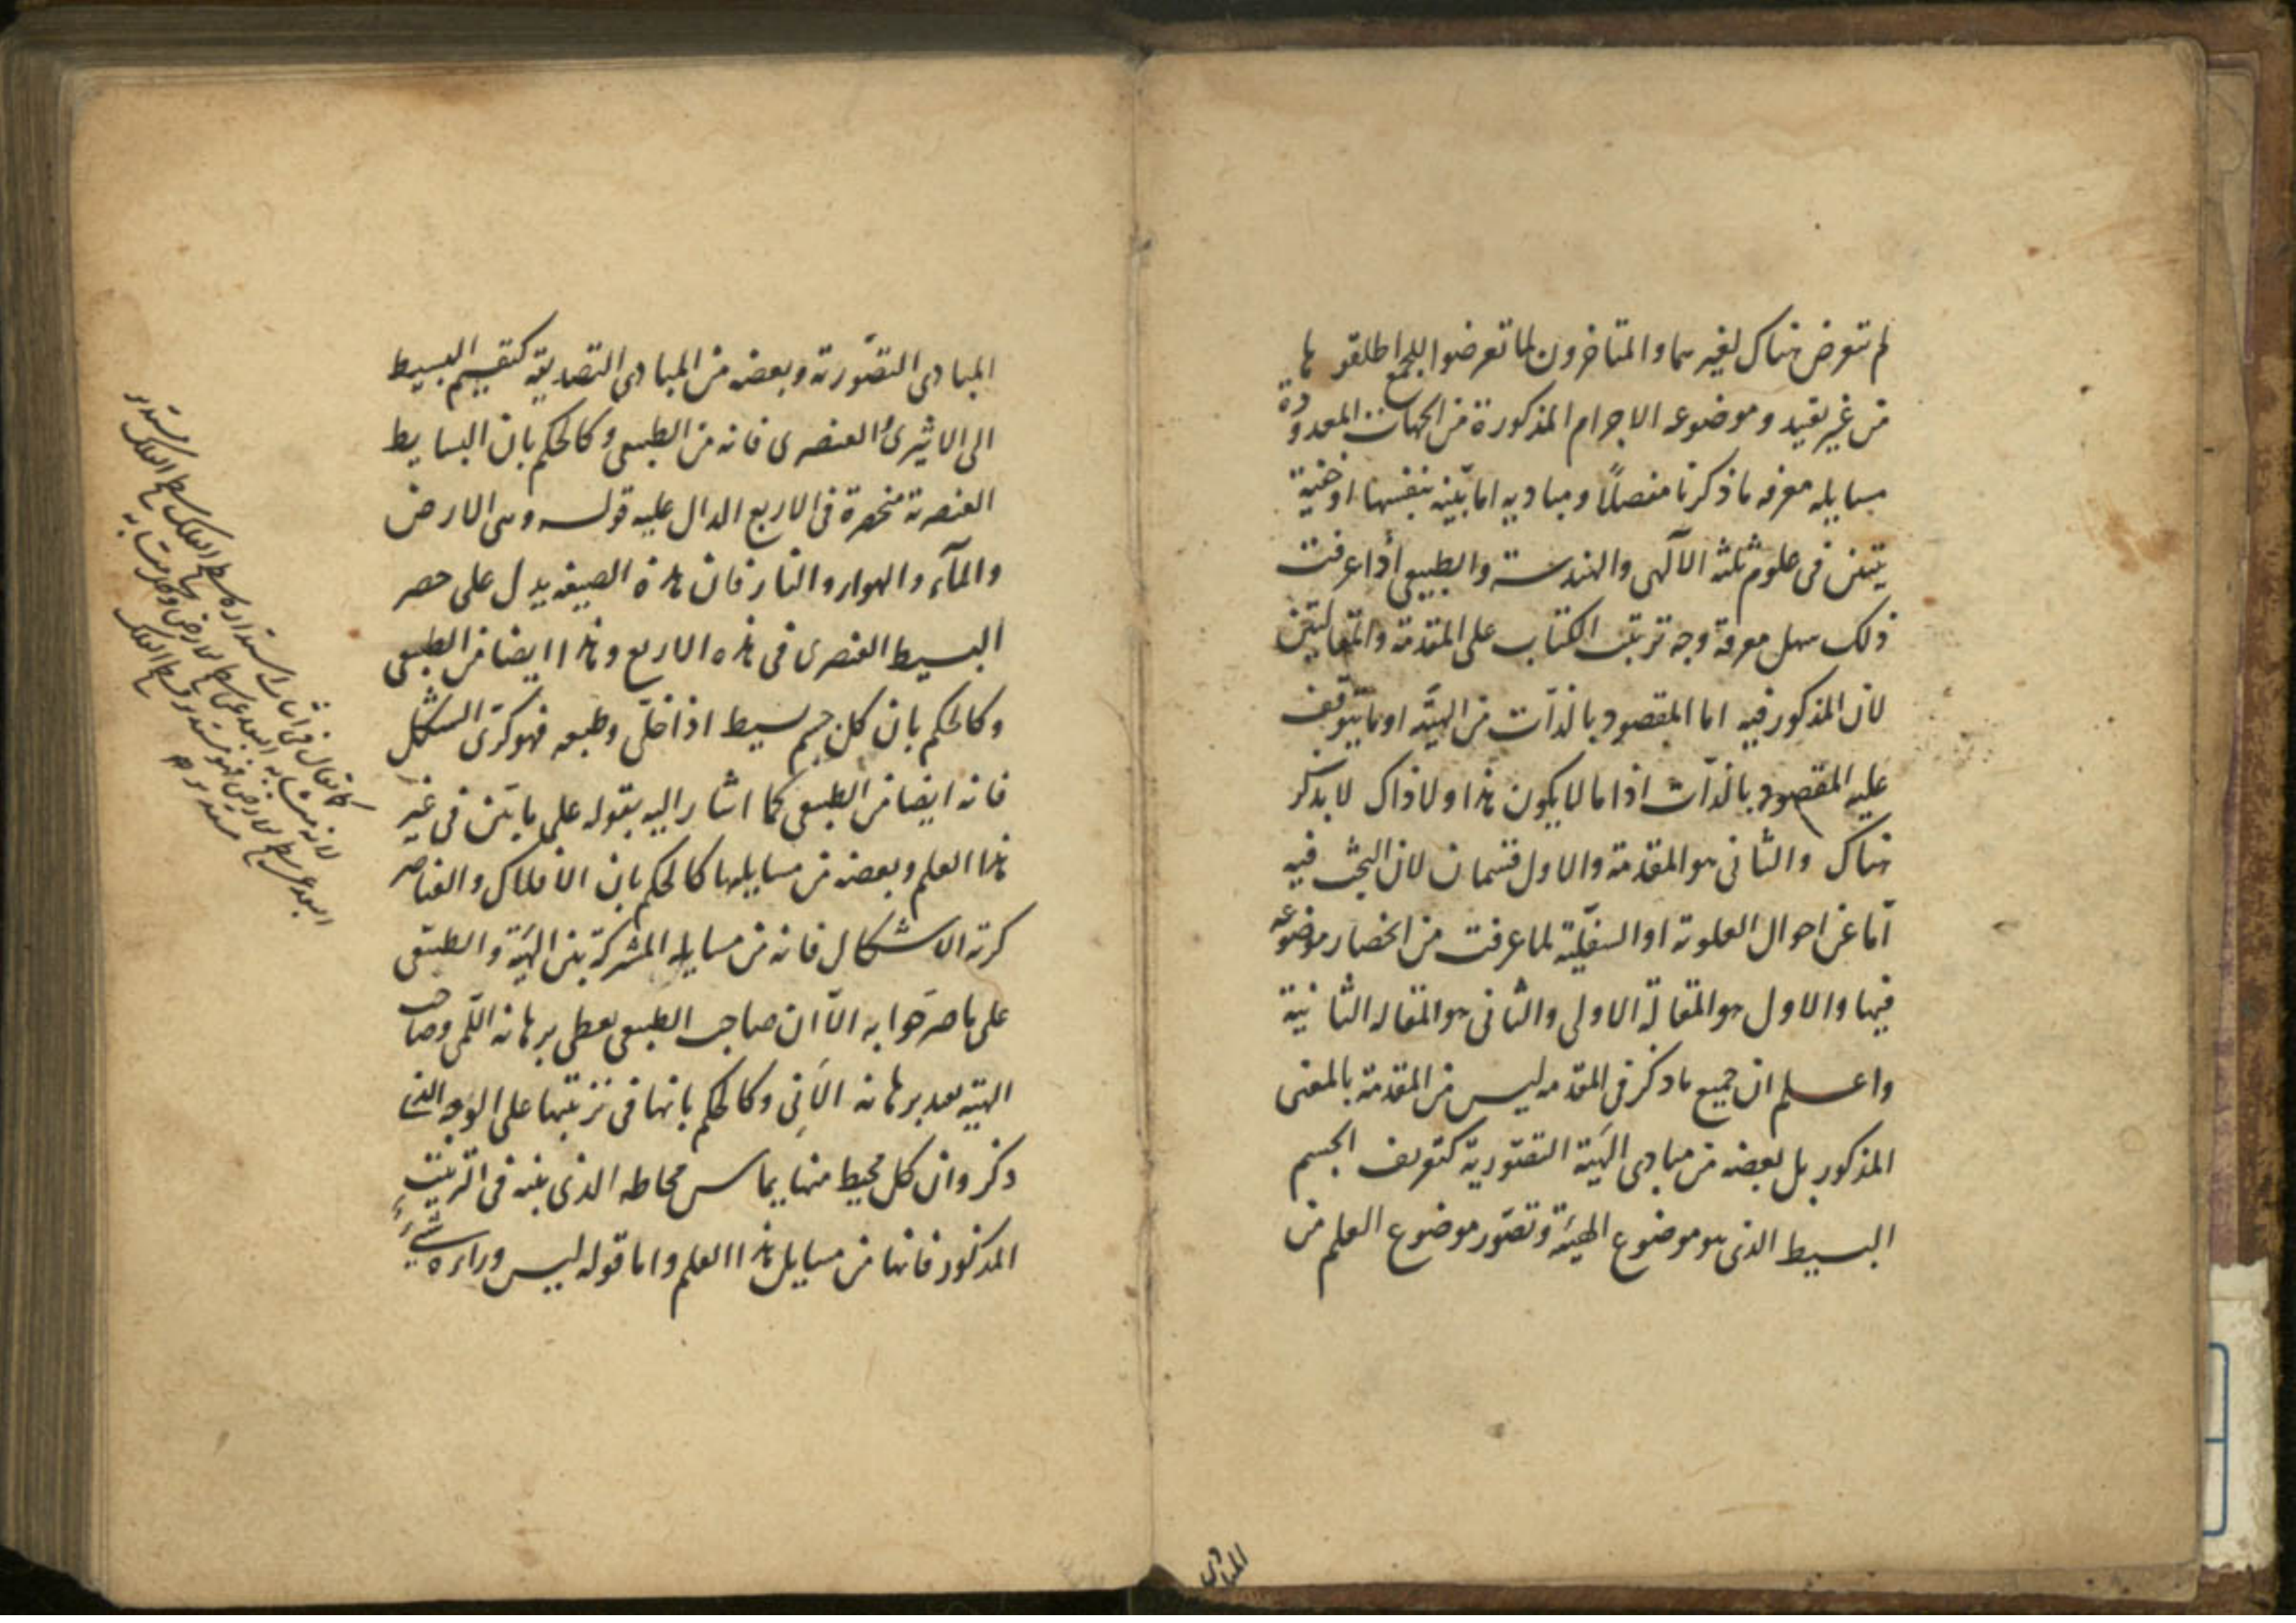 لم يتعرض هناك لغيرهما والمتاخرون لما تعرضوا للجميع اطلقوها
من غير تقييد وموضوعه الاجرام المذكورة من الجهات المعدودة
مسايله معرفه ما ذكرنا مفصلاً ومباديه اما بيّنه بنفسها او خفية
يتبين في علوم ثلثه الآلهى والهندسة والطبيعى اذا عرفت
ذلك سهل معرفة وجه ترتيب الكتاب على المقدمة والمقالتين
لان المذكور فيه اما المقصود بالذات من الهيئة او ما يتوقف
عليه المقصود بالذات اذ ما لا يكون هذا ولا ذاك لا يذكر
هناك والثانى هو المقدمة والاول قسمان لان البحث فيه
امّا عن احوال العلوية او السفليّة لما عرفت من انحصار موضوعه
فيها والاول هو المقالة الاولى والثانى هو المقاله الثانية
واعلم ان جميع ما ذكر فى المقدمه ليس من المقدمة بالمعنى
المذكور بل بعضه من مبادى الهيئة التصّورية كتعريف الجسم
البسيط الذى هو موضوع الهيئة وتصّور موضوع العلم من
المبادى
المبادى التصّورية وبعضه من المبادى التصديقية كتقسيم البسيط
الى الاثيرى والعنصرى فانه من الطبيعى وكالحكم بان البسايط
العنصرية منحصرة فى الاربع الدال عليه قوله وهى الارض
والمآء والهواء والنار فان هذه الصيغه يدل على حصر
البسيط العنصرى فى هذه الاربع وهذا ايضا من الطبيعى
وكالحكم بان كل جسم بسيط اذا خلّى وطبعه فهو كرىّ الشكل
فانه ايضا من الطبيعى كما اشار اليه بقوله على ما بيّن فى غير
هذا العلم وبعضه من مسايلها كالحكم بان الافلاك والعناصر
كرية الاشكال فانه من مسايله المشتركة بين الهيئة والطبيعى
على ما صرّحوا به الاّ ان صاحب الطبيعى يعطى برهانه اللّمى وصاحب
الهيئة يعيد برهانه الاَنّى وكالحكم بانها فى ترتيبها على الوجه الذى
ذكر وان كل محيط منها يماس محاطه الذى يليه فى الترتيب
المذكور فانها من مسايل هذا العلم واما قوله ليس وراءه شىء